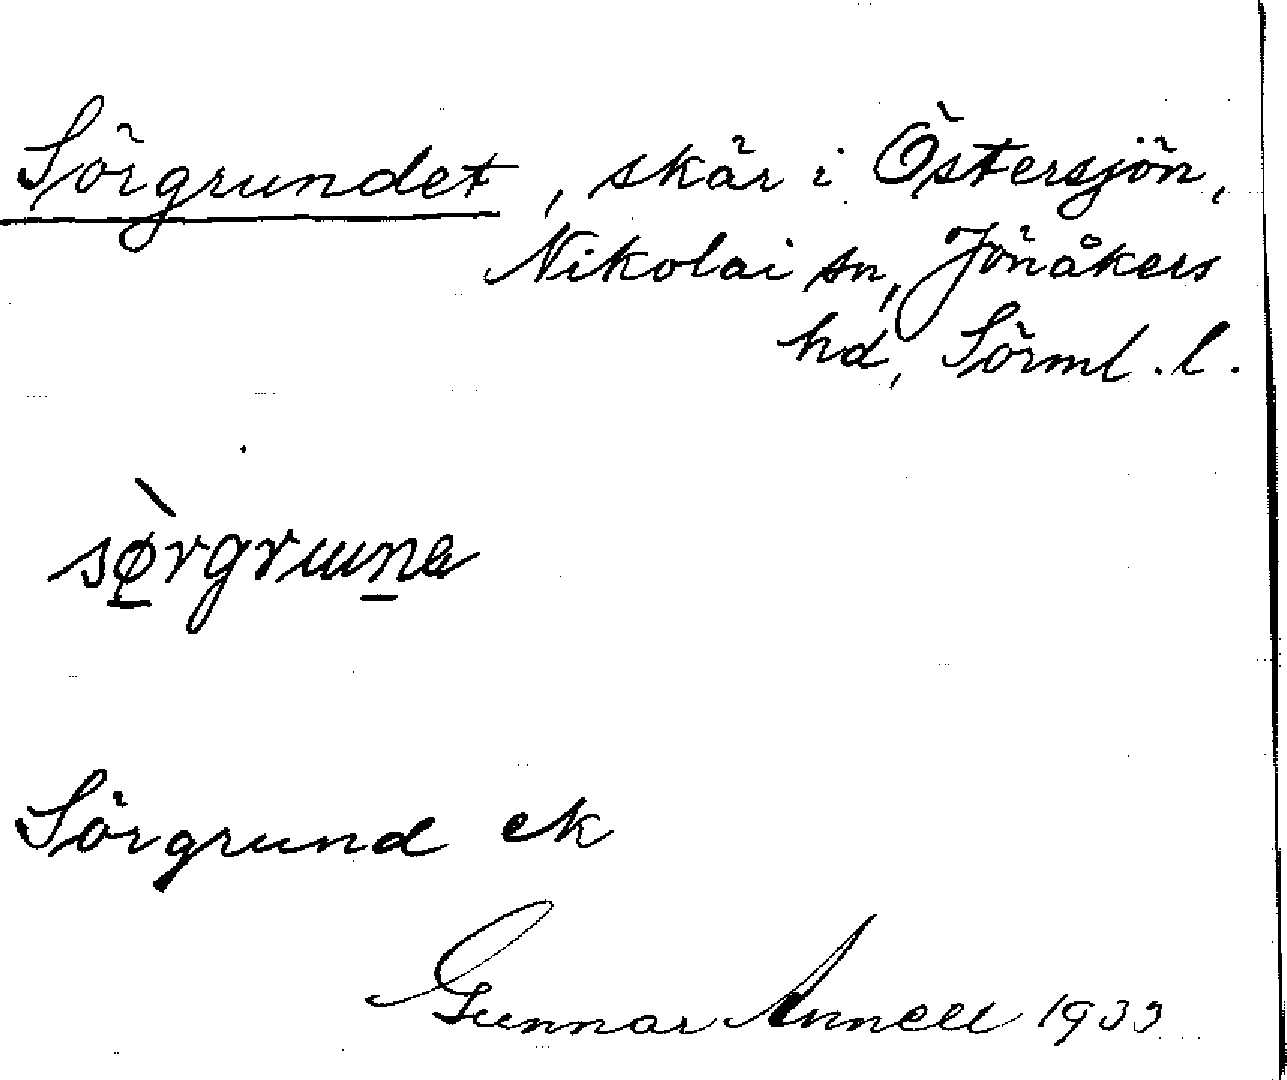 Sörgrundet, skär i Östersjön,
Nikolai sn, Jönåkers
hd, Sörml. l.
sø̀rgruna
Sörgrund ek
Gunnar Annell 1933